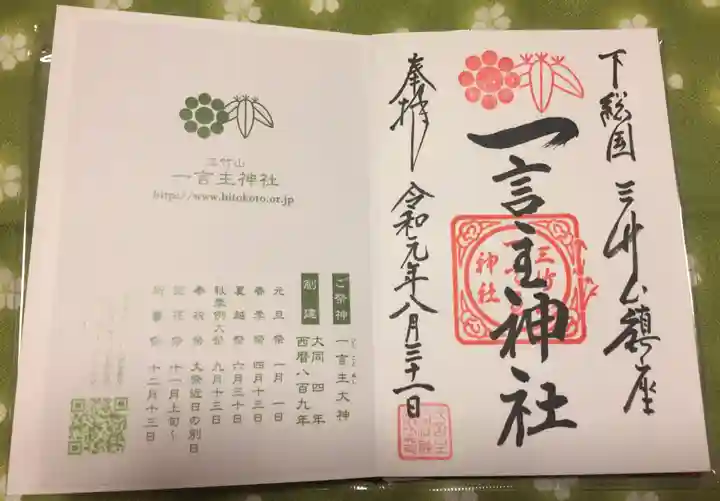 下総国 三竹山鎮座
一言主神社
奉拝 令和元年八月三十一日
三竹
神社
三竹山
一言主神社
https://www.hitokoto.or.jp
ご祭神 一言主大神
創建 大同四年
西暦八百九年
元旦祭 一月一日
春季祭 四月十三日
夏越祭 六月三十日
秋季例大祭 九月十三日
大祭近日の別日
十一月上旬〜
十二月十三日